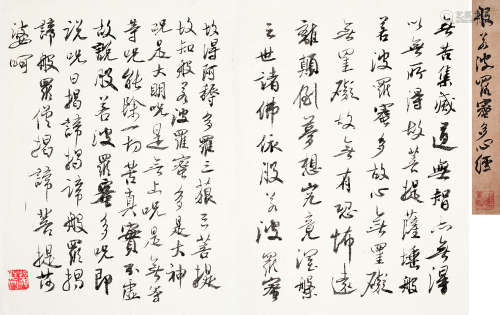 般若波羅蜜多心經
無苦集滅道無智亦無得
以無所得故菩提薩埵般
若波羅蜜多故心無罣礙
無罣礙故無有恐怖遠
離顛倒夢想究竟涅槃
三世諸佛依般若波羅蜜
故得阿耨多羅三藐三菩提
故知般若波羅蜜多是大神
呪是大明呪是無上呪是無等
等呪能除一切苦真實不虛
故說般若波羅蜜多呪即
說呪曰揭諦揭諦般羅揭
諦般羅僧揭諦菩提莎
婆呵